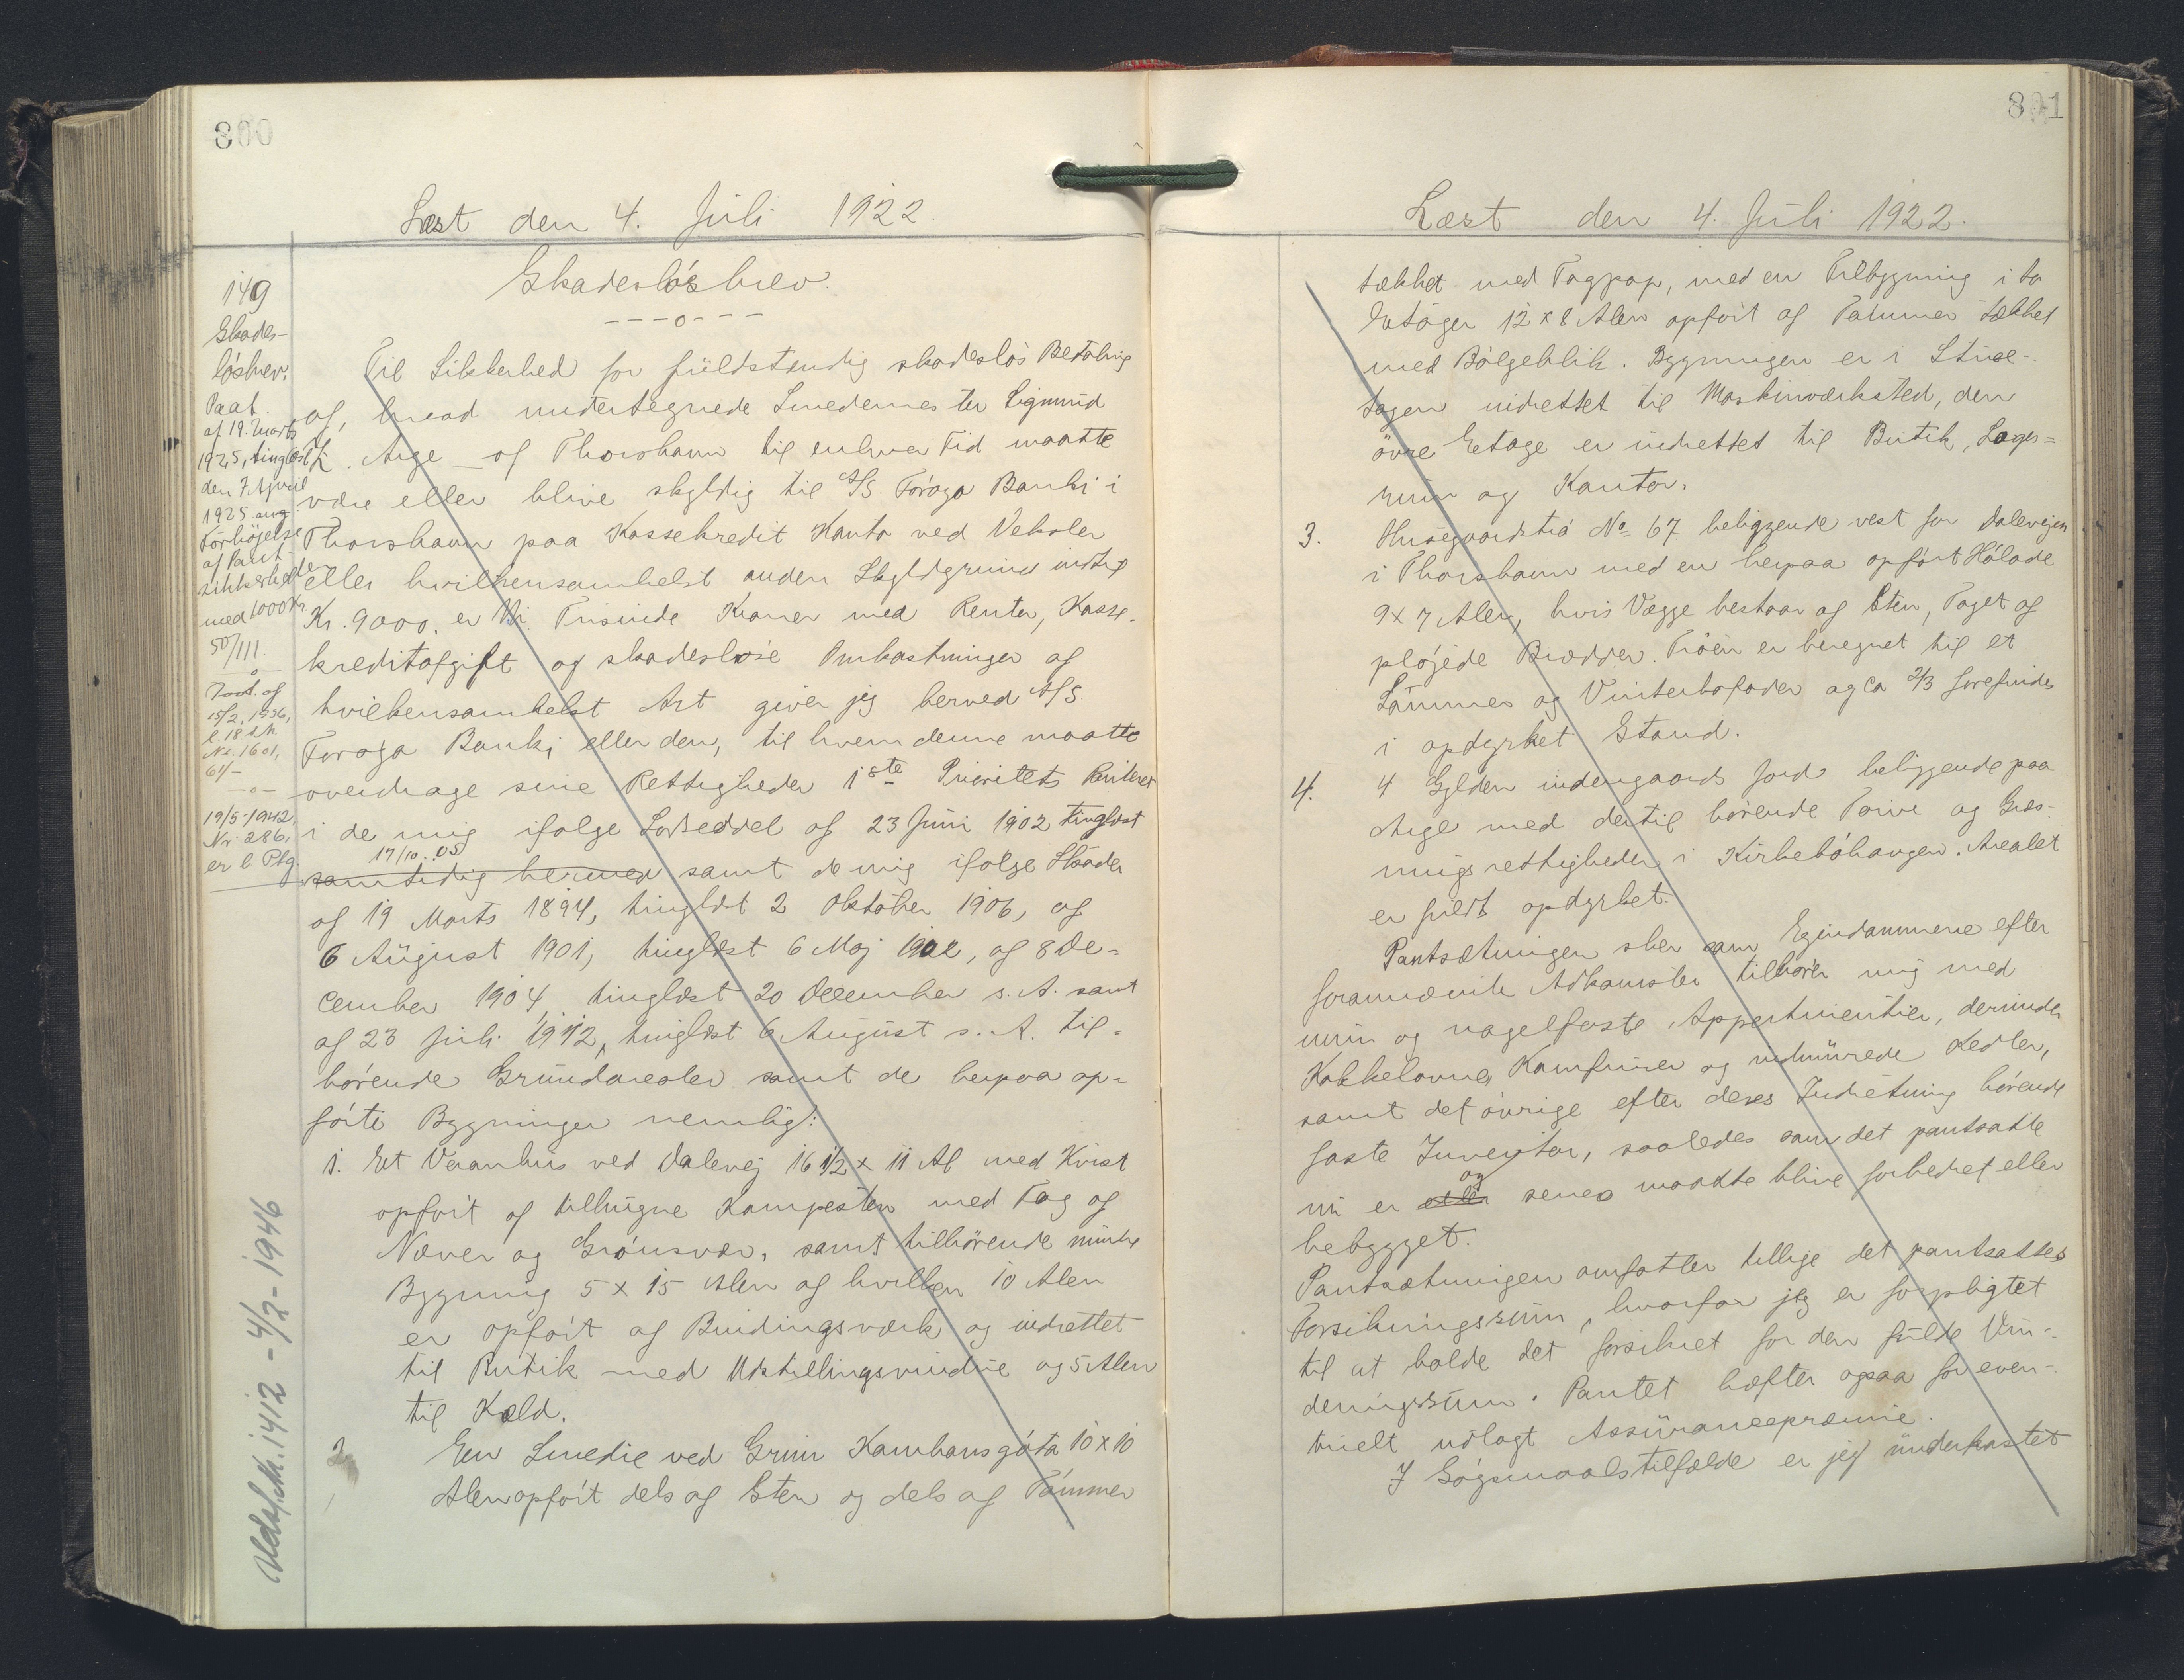 300
Læst den 4. Juli 1922.
149
Skades-
lösbrev.
Paat.
af 19. Marts
1925, tinglæst
den 7. April
1925 ang.
Forhöjelse
af Pant-
sikkerheden
med 1000 Kr.
50/111.
—o—
Paat. af
15/2. 1936,
l. 18 s.M.
Nr. 1601,
61/-
—o—
19/5-1942,
Nr. 286,
er l. Ptg.
Udslt. 1412 - 4/2-1946
Skadeslósbrev.
---o---
Til Sikkerhed for füldstændig skadeslós Betaling
af, hvad undertegnede Smedemester Sigmund
F. Arge af Thorshavn til enhver Tid maatte
være eller blive skyldig til A/S. Foroya Banki i
Thorshavn paa Kassekredit Konto ved Veksler
eller hvilkensomhelst anden Skyldgrund indtil
Kr. 9000. er Ni Tusinde Kroner med Renter, Kasse-
kreditafgift og skadeslose Omkostninger af
hvilkensomhelst Art giver jeg herved A/S
Foroya Banki eller den, til hvem denne maatte
overdrage sine Rettigheder 1ste Prioritets Panteret
i de mig ifolge Lodseddel af 23 Juni 1902 tinglæst
17/10. 05
samtidig hermed samt de mig ifolge Skóder
af 19 Marts 1894, tinglæst 2 Oktober 1906, af
6 Aügust 1901, tinglæst 6 Maj 1902, af 8 De-
cember 1904, tinglæst 20 December s. A. samt
af 23 Juli 1912, tinglæst 6 August s. A. til-
hörende Grundarealer samt de herpaa op-
förte Bygninger nemlig:
1. Et Vaanhus ved Dalevej 16 1/2 x 11 Al med Kvist
opfört af tilhugne Kampesten med Tag af
Næver og Grónsvær, samt tilhörende mindre
Bygning 5 x 15 Alen af hvilken 10 Alen
er opfört af Bindingsværk og indrettet
til Butik med Udstillingsvindue og 5 Alen
til Kæld.
2 En Smedie ved Grim Kambansgóta 10 x 10
Alen opfört dels af Sten og dels af Tömmer
301
Læst den 4. Juli 1922.
tækket med Tagpap, med en Tilbygning i to
Etager 12 x 8 Alen opfört af Tømmer tækket
med Bölgeblik. Bygningen er i Stue-
tagen indrettet til Maskinværksted, den
övre Etage er indrettet til Butik, Lager=
rum og Kontor.
3. Husegaardstrá No 67 beliggende vest for Dalevejen
i Thorshavn med en herpaa opfört Hölade
9 x 7 Alen, hvis Vægge bestaar af Sten, Taget af
plójede Brædder. Tróen er beregnet til et
Lammes og Vinterhofoder og ca 2/3 forefindes
i opdyrket Stand.
4. 4 Gylden indengaards Jord beliggende paa
Arge med dertil hörende Torve og Græs-
nings rettigheder i Kirkebóhaugen. Arealet
er fuldt opdyrket.
Pantsætningen sker som Ejendommene efter
forannævnte Adkomster tilhörer mig med
mur og nagelfaste Appertinentier, derunder
Kakkelovne, Komfurer og indmurede Kedler,
samt det óvrige efter deres Indretning hörende
faste Inventar, saaledes som det pantsatte
og
nu er eller senere maatte blive forbedret eller
bebygget.
Pantsætningen omfatter tillige det pantsattes
Forsikringssum, hvorfor jeg er forpligtet
til at holde det forsikret for den fulde Vur-
deringssum. Pantet hæfter ogsaa for even-
tuelt udlagt Assüranceprænie.
I Sógsmaalstilfælde er jeg underkastet